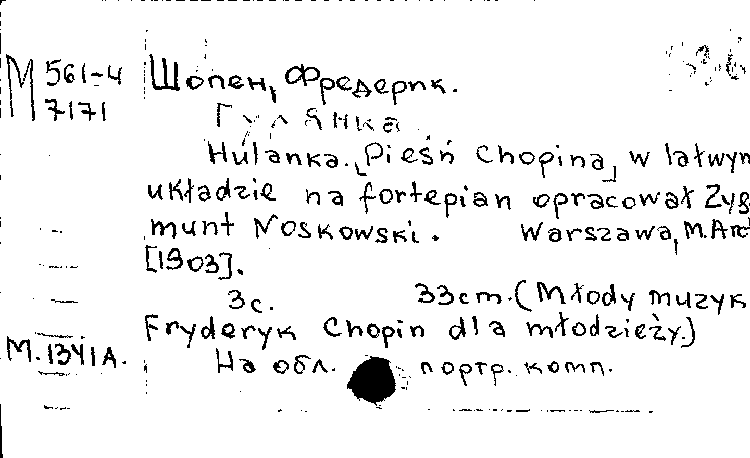 М 561-4
7171
Шопен, Фредерик.
Гулянка
Hulanka. [Pieśń Chopina] w łatwym
układzie na fortepian opracował Zyg
munt Noskowski. Warszawa, M. Arc
[1903].
3 с. 33 cm. (Młody muzyk
Fryderyk Chopin dla młodzieży.)
М. 1341А. На обл. портр. комп.